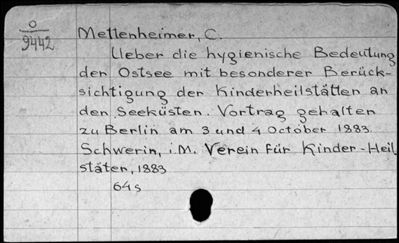 O
9442
Mettenheimer, C.
Ueber die hygienische Bedeutung
der Ostsee mit besonderer Berück-
sichtigung der Kinderheilstätten an
den Seeküsten. Vortrag gehalten
zu Berlin am 3 und 4 October 1883.
Schwerin, i.M. Verein für Kinder-Heil
stäten, 1883
64s